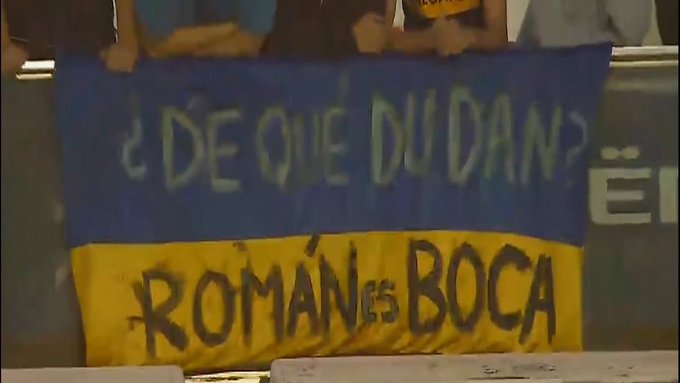 ¿DE QUÉ DUDAN?
ROMÁN es BOCA